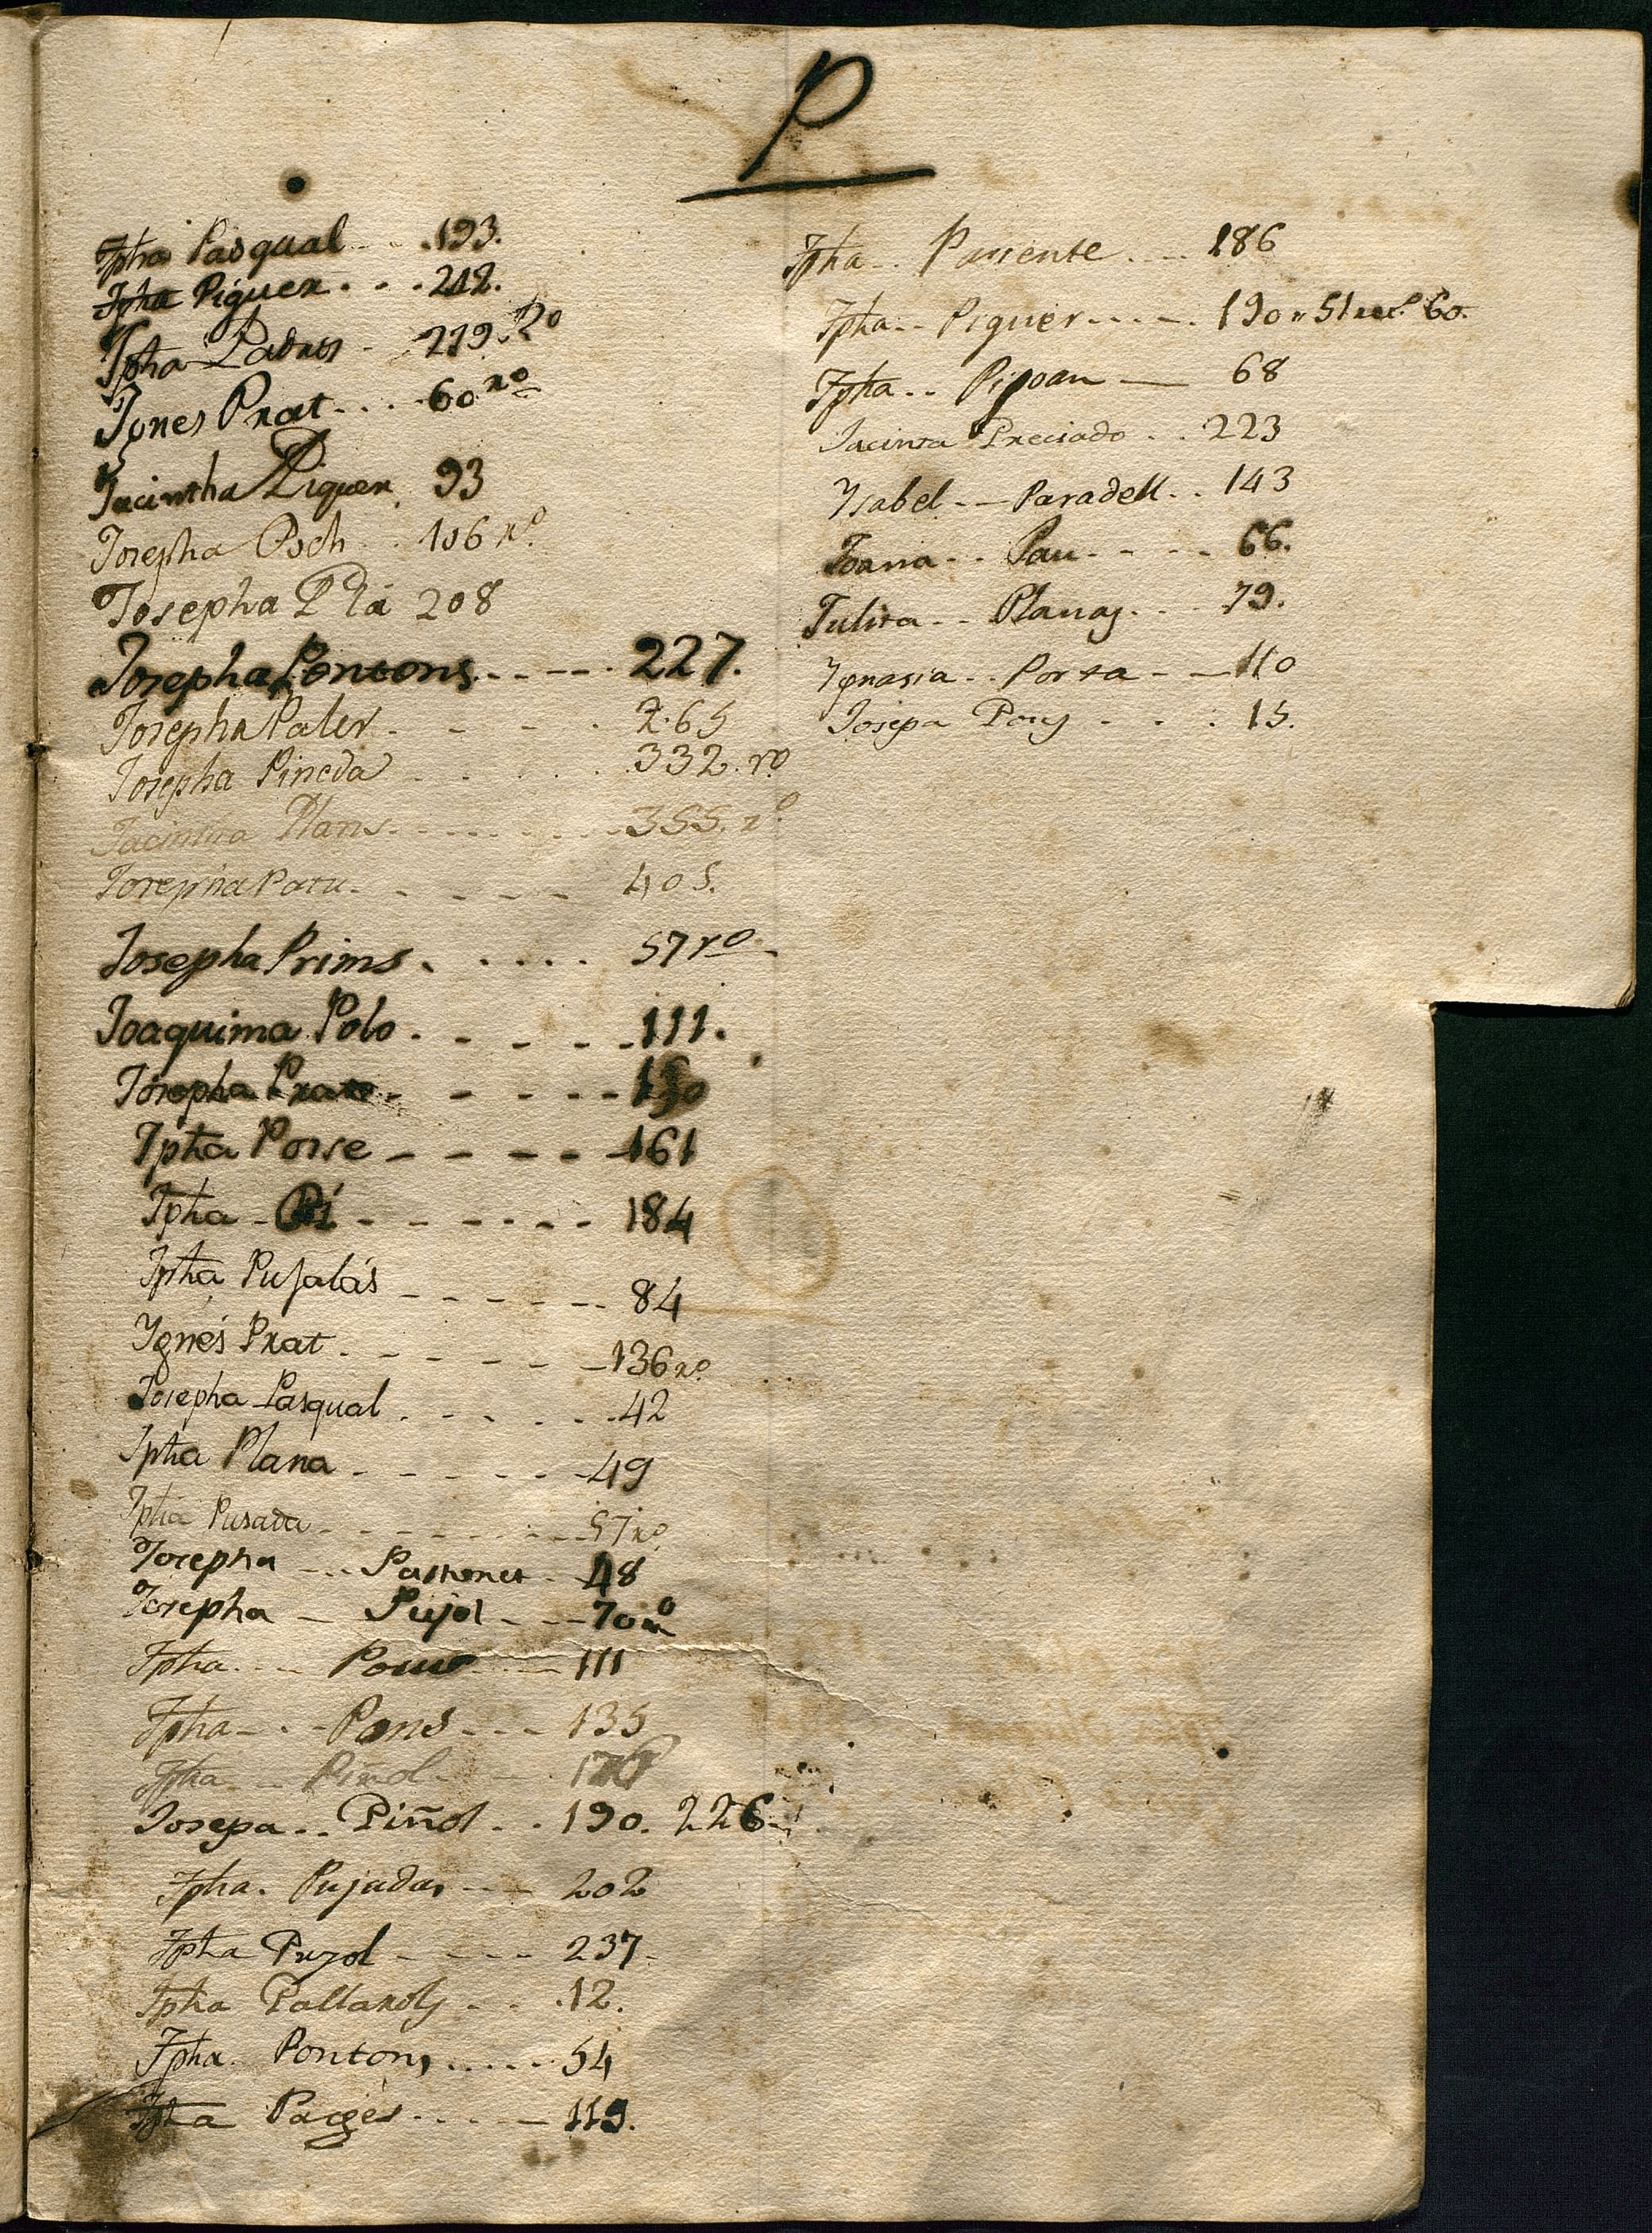 P
Jpha Pasqual . . 193.
Jpha Piguer . . . 242.
Jpha Padros - 219. Ro
Ignes Prat . . . 60 ro
Jacintha Piguer 93
Josepha Poch . . 106 ro
Josepha Pla 208
Josepha Pontons . . - - - . 227.
Josepha Paler . - - - . 265
Josepha Pineda . . . . 332. ro
Jacintha Plans . - - - - - 355. ro
Josepha Patu . - - - - 405.
Josepha Prims . . . . . 57 ro
Joaquima Polo . - - - - 111.
Josepha - - - -
Jpha Porse - - - - - 161
Jpha - Pi - - - - - - 184
Jpha Pujalás - - - - - - 84
Ygnés Prat . - - - - - 136 ro
Josepha Pasqual . - - - . . 42
Jpha Plana . - - - - - 49
Jpha Pusada . - - - - - - 57 ro
Josepha - . . . 48
Josepha - Pujol - - - 70 ro
Jpha . . - - 111
Jpha - . - Pons - - - 135
Jpha - - Piñol
Josepa . . Piñol . . 190. 226
Jpha . Pujadas - - - 202
Jpha Pujol - - - - 237 -
Jpha Pallarols - . . 12.
Jpha . Pontons . . . . . 54
Jpta Pagès . . . - - 119.
Jpha . . Pariente . . . . 186
Jpha . . Piguer . . . - . 190 " 51 60.
Jpha . . Pipoan — 68
Jacinta Preciado . . . 223
Ysabel - - Paradell . . 143
Joana . . Pau . - - - 66.
Julita . . Planas . - - 79.
Ygnasia . . Porta - - 110
Josepa Pons . - . . 15.